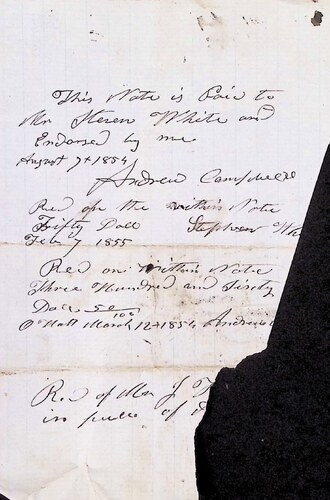 This Note is Paid to
Mr Steven White and
Endorsed by me
August 7th 1854
Andrew Campbell
Recd on the within Note
Fifty Doll Stephen Wh
Feb 7 1855
Recd on within Note
Three Hundred and Sixty
Doll 50/100
March 12th 1854 Andrew
Recd of Mr J
in full of